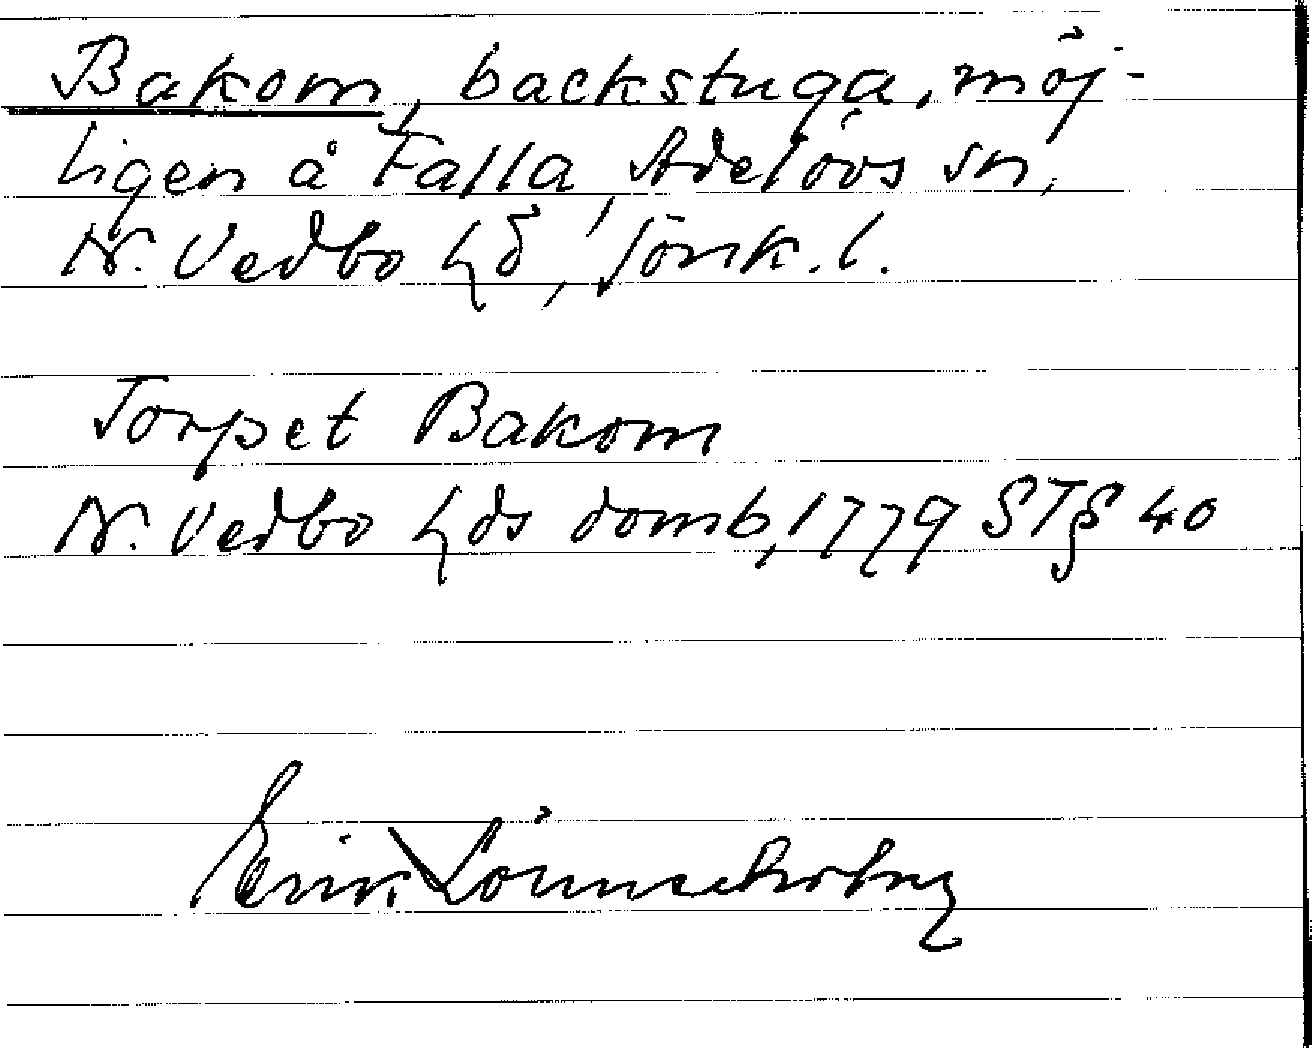 Bakom, backstuga, möj-
ligen å Falla, Adelövs sn,
N. Vedbo hd, Jönk. l.
Torpet Bakom
N. Vedbo hds domb, 1779 ST § 40
Erik